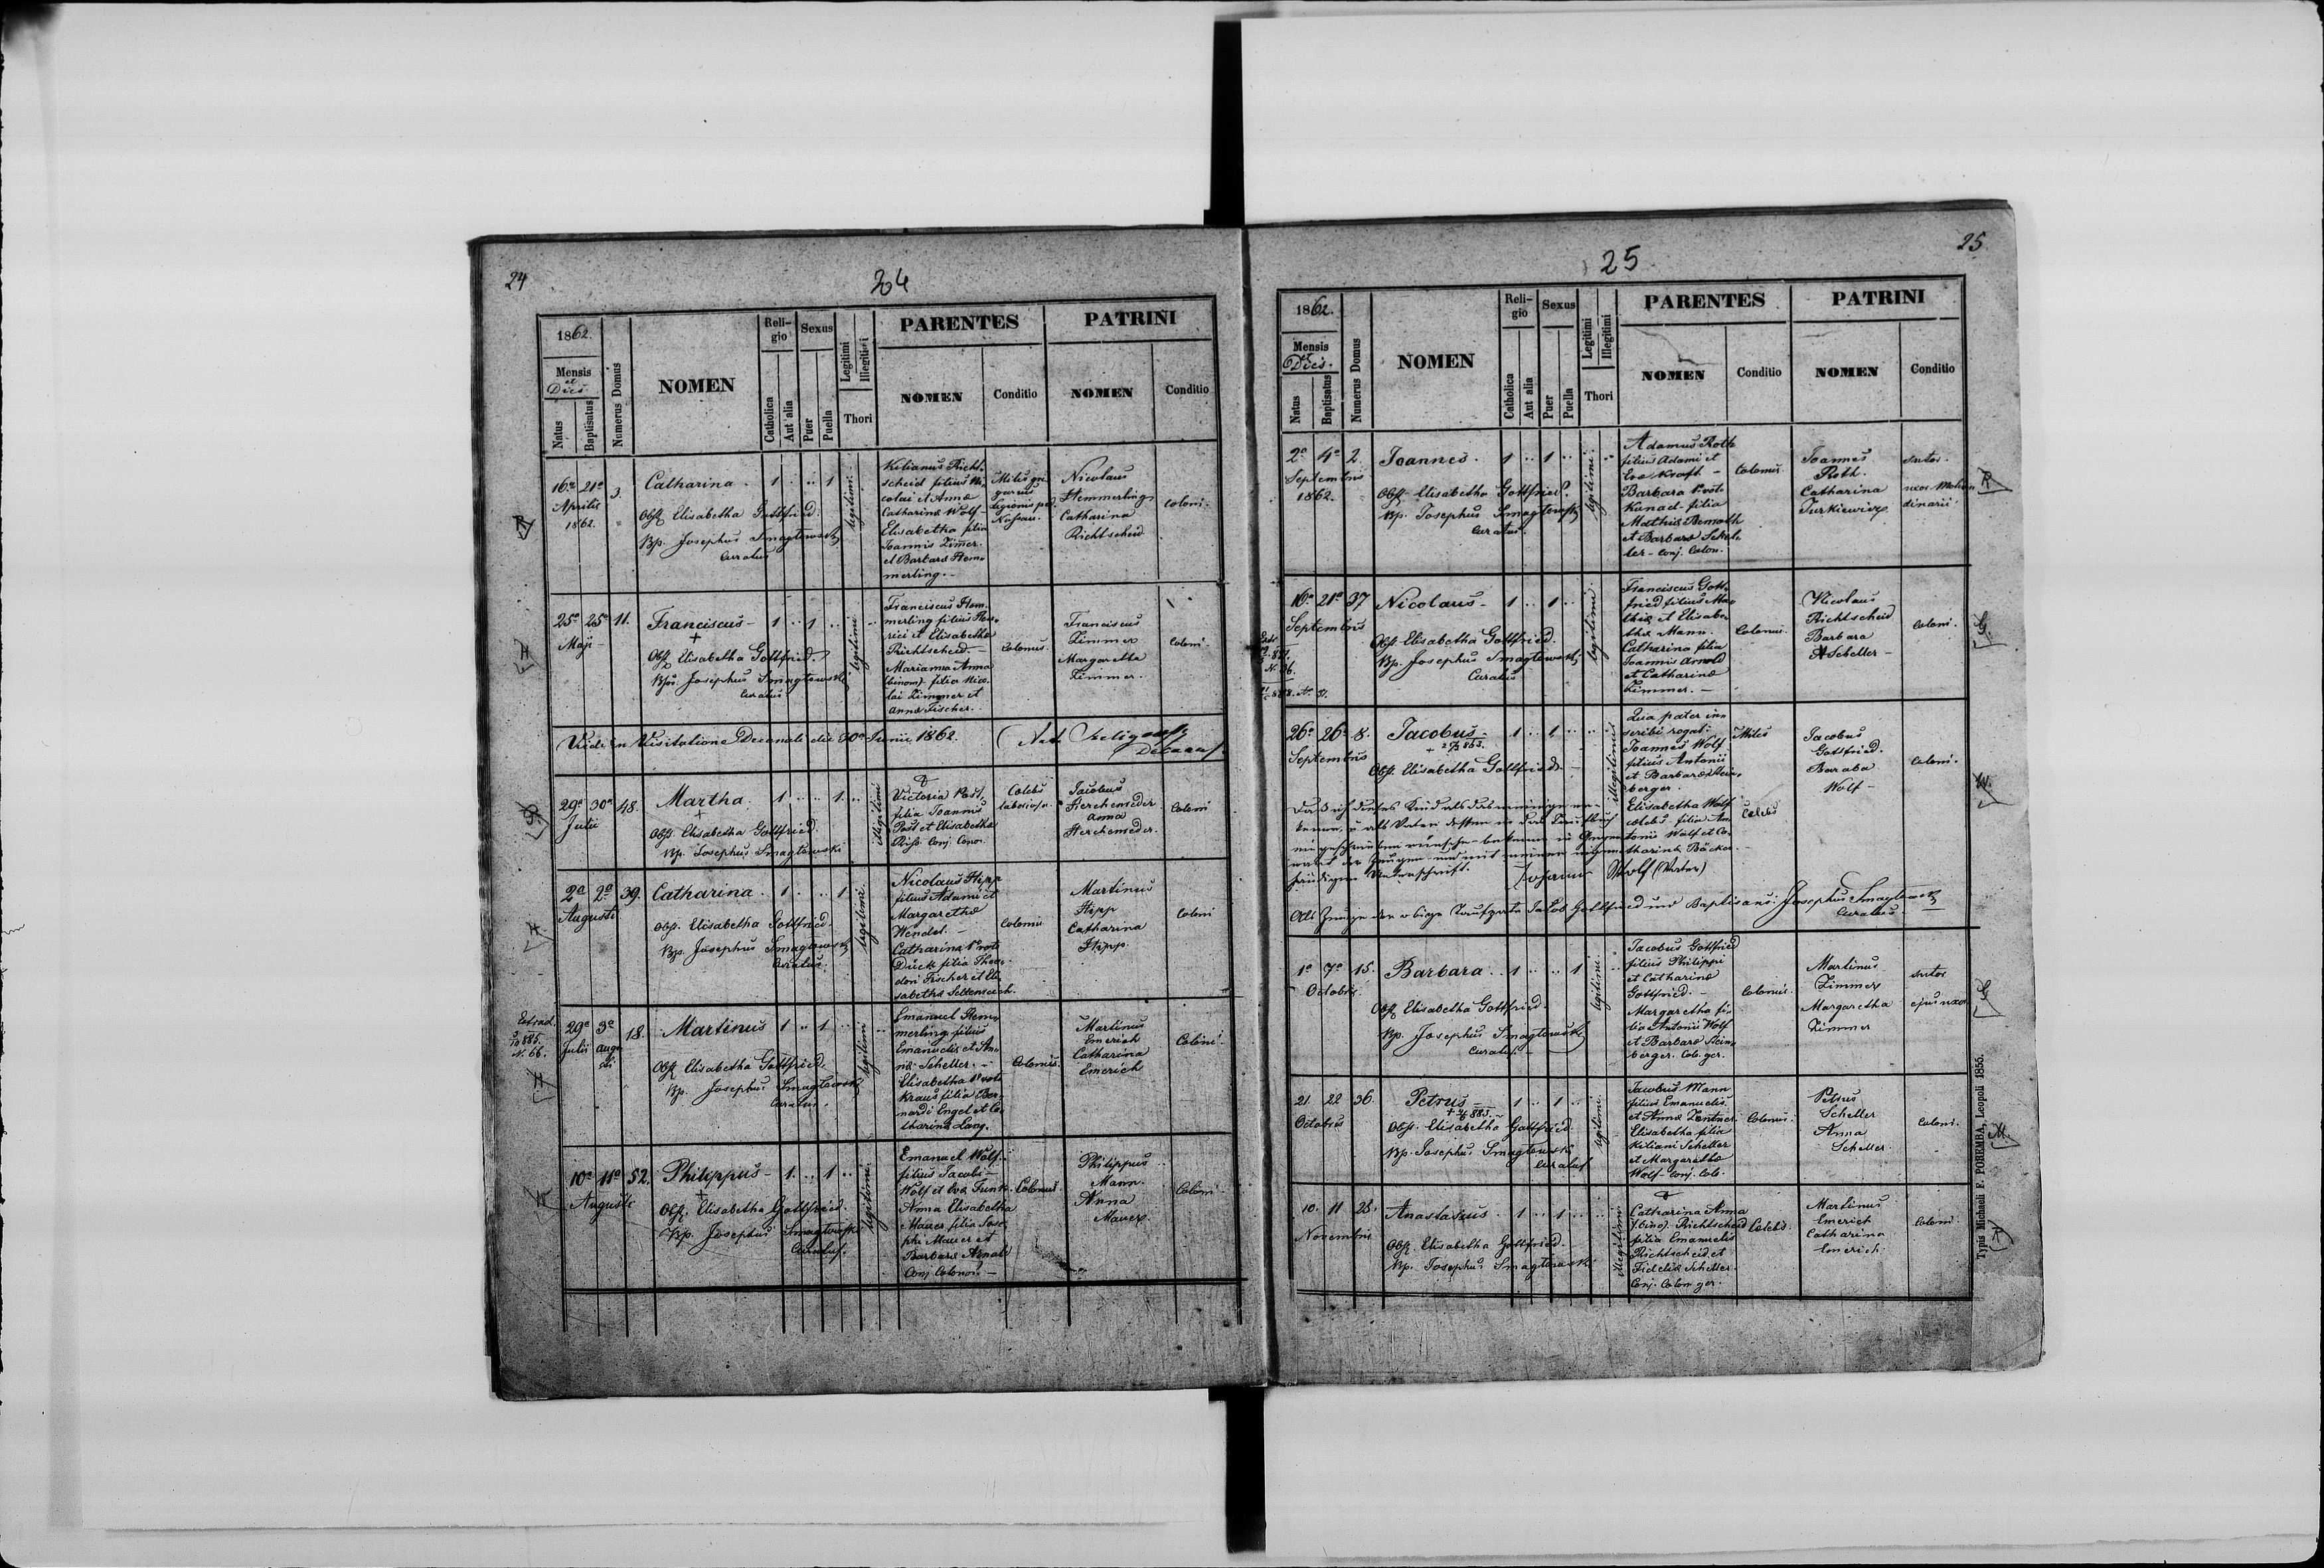 24
24
1862.
Mensis
et
Dies.
Natus
Baptisatus
Numerus Domus
NOMEN
Reli-
gio
Catholica
Aut alia
Sexus
Puer
Puella
Legitimi
Illegitimi
Thori
PARENTES
NOMEN
Conditio
PATRINI
NOMEN
Conditio
16a 21a 3.
Aprilis
1862.
Catharina. 1 .. .. 1
Obst. Elisabetha Gottfried.
Bp. Josephus Smagłowski
Curatus
legitimi
Kilianus Richt-
scheid filius Ni-
colai et Anna
Catharina Wolf -
Elisabetha filia
Joannis Zimer.
et Barbara Hem-
merling. -
Miles gre-
garius
legionis ped.
Nassau.
Nicolaus
Hemmerling
Catharina
Richtscheid
coloni.
R
25a 25a 11.
Maji -
Franciscus - 1 .. 1 ..
+
Obst. Elisabetha Gottfried.
Bps. Josephus Smagłowski
Curatus
legitimi
Franciscus Hem-
merling filius Hen-
rici et Elisabetha
Richtscheid. -
Marianna Anna
(binom). filia Nico-
lai Zimmer et
Anna Fischer.
Colonus.
Franciscus
Zimmer
Margaretha
Zimmer.
Coloni.
H
Vidi in Visitatione Decanali die 30a Junii 1862.
29a 30a 48.
Julii
Martha. 1 .. .. 1 ..
+
Obst. Elisabetha Gottfried.
Bp. Josephus Smagłowski
illegitimi
Victoria Post,
filia Joannis
Post et Elisabetha
Conj. Colon.
Celebs
Jacobus
Herchenreder
Anna
Herchenreder.
Coloni
2a 2a 39.
Augusti
Catharina. 1 .. .. 1
Obst. Elisabetha Gottfried.
Bp. Josephus Smagłowski
Curatus.
legitimi.
Nicolaus Hipp
filius Adami et
Margaretha
Wendel. -
Catharina 1o voto
Dück filia Theo-
dori Fischer et Eli-
sabetha
Colonus
Martinus
Hipp
Catharina
Hipp.
Coloni
H
Extrad.
3/10 885.
N. 66.
29a 3a 18.
Julii Augu-
sti
Martinus 1 .. 1 ..
Obst. Elisabetha Gottfried.
Bp. Josephus Smagłowski
Curatus.
legitimi
Emanuel Hem-
merling filius
Emanuelis et An-
na Scheller. -
Elisabetha 1o voto
Kraus filia Ber-
nardi Engel et Ca-
tharina Lang.
Colonus.
Martinus
Emerich
Catharina
Emerich
Coloni.
H
10a 11a 52.
Augusti
Philippus - 1. .. 1 ..
+
Obst. Elisabetha Gottfried.
Bp. Josephus Smagłowski
Curatus.
legitimi
Emanuel Wolf.
filius Jacobi -
Wolf et Eva Funk.
Anna Elisabetha
Mauer filia Jose-
phi Mauer et
Barbara Arnold
Conj. Colonor. -
Colonus.
Philippus
Mann.
Anna
Mauer.
Coloni.
25
25
1862.
Mensis
et
Dies.
Natus
Baptisatus
Numerus Domus
NOMEN
Reli-
gio
Catholica
Aut alia
Sexus
Puer
Puella
Legitimi
Illegitimi
Thori
PARENTES
NOMEN
Conditio
PATRINI
NOMEN
Conditio
2a 4a 2.
Septembris
1862.
Joannes. 1 .. 1 ..
Obst. Elisabetha Gottfried.
Bp. Josephus Smagłowski
Curatus.
legitimi.
Adamus Roth
filius Adami et
Eva Kraft. -
Barbara 1o voto
Kunael filia
Mathia Bernoth
et Barbara Schel-
ler - Conj. Colon.
Colonus.
Joannes
Roth.
Catharina
Jurkiewicz.
sutor.
uxor
R
16a 21a 37
Septembris
Nicolaus - 1 .. 1 ..
Obst. Elisabetha Gottfried.
Bp. Josephus Smagłowski
Curatus
legitimi.
Franciscus Gott-
fried filius Ma-
thia et Elisabe-
tha Mann.
Catharina filia
Joannis Arnold
et Catharina
Zimmer. -
Colonus.
Nicolaus
Richtscheid
Barbara
Scheller -
Coloni.
G.
26a 26a 8.
Septembris
Jacobus - 1 .. 1 ..
Obst. Elisabetha Gottfried. -
illegitimus
Qua pater in-
scribi rogat:
Joannes Wolf
filius Antonii
et Barbara Stein-
berger.
Elisabetha Wolf
celebs filia An-
tonii Wolf et Ca-
tharina Bäcker. -
Miles
Celebs
Jacobus
Gottfried.
Baraba
Wolf -
Coloni.
W.
Johann Wolf (Vater)
Als Zeuge der obige Taufpate Jakob Gottfried und Baptisans: Josephus Smagłowski
Curatus -
1a 7a 15.
Octobris.
Barbara. 1 .. .. 1
Obst. Elisabetha Gottfried.
Bp. Josephus Smagłowski
Curatus. -
legitimi.
Jacobus Gottfried
filius Philippi
et Catharina
Gottfried. -
Margaretha fi-
lia Antonii Wolf
et Barbara Stein-
berger. Colo. ger.
Colonus.
Martinus
Zimmer
Margaretha
Zimmer
sutor
ejus uxor
G
21. 22 36.
Octobris
Petrus - 1 .. 1 ..
Obst. Elisabetha Gottfried.
Bp. Josephus Smagłowski
Curatus
legitimi.
Jacobus Mann
filius Emanuelis
et Anna Zentner.
Elisabetha filia
Kiliani Scheller
et Margaretha
Wolf - Conj. Colo.
Colonus.
Petrus
Scheller
Anna
Scheller.
Coloni.
M.
10. 11 28.
Novembris
Anastasius. 1 .. 1 ..
Obst. Elisabetha Gottfried.
Bp. Josephus Smagłowski
illegitimi
Catharina Anna
(bino). Richtscheid
filia Emanuelis
Richtscheid et
Fidelis Scheller.
Conj. Colon. ger.
Celebs.
Martinus
Emerich
Catharina
Emerich.
Coloni.
Typis Michaeli F. POREMBA, Leopoli 1855.